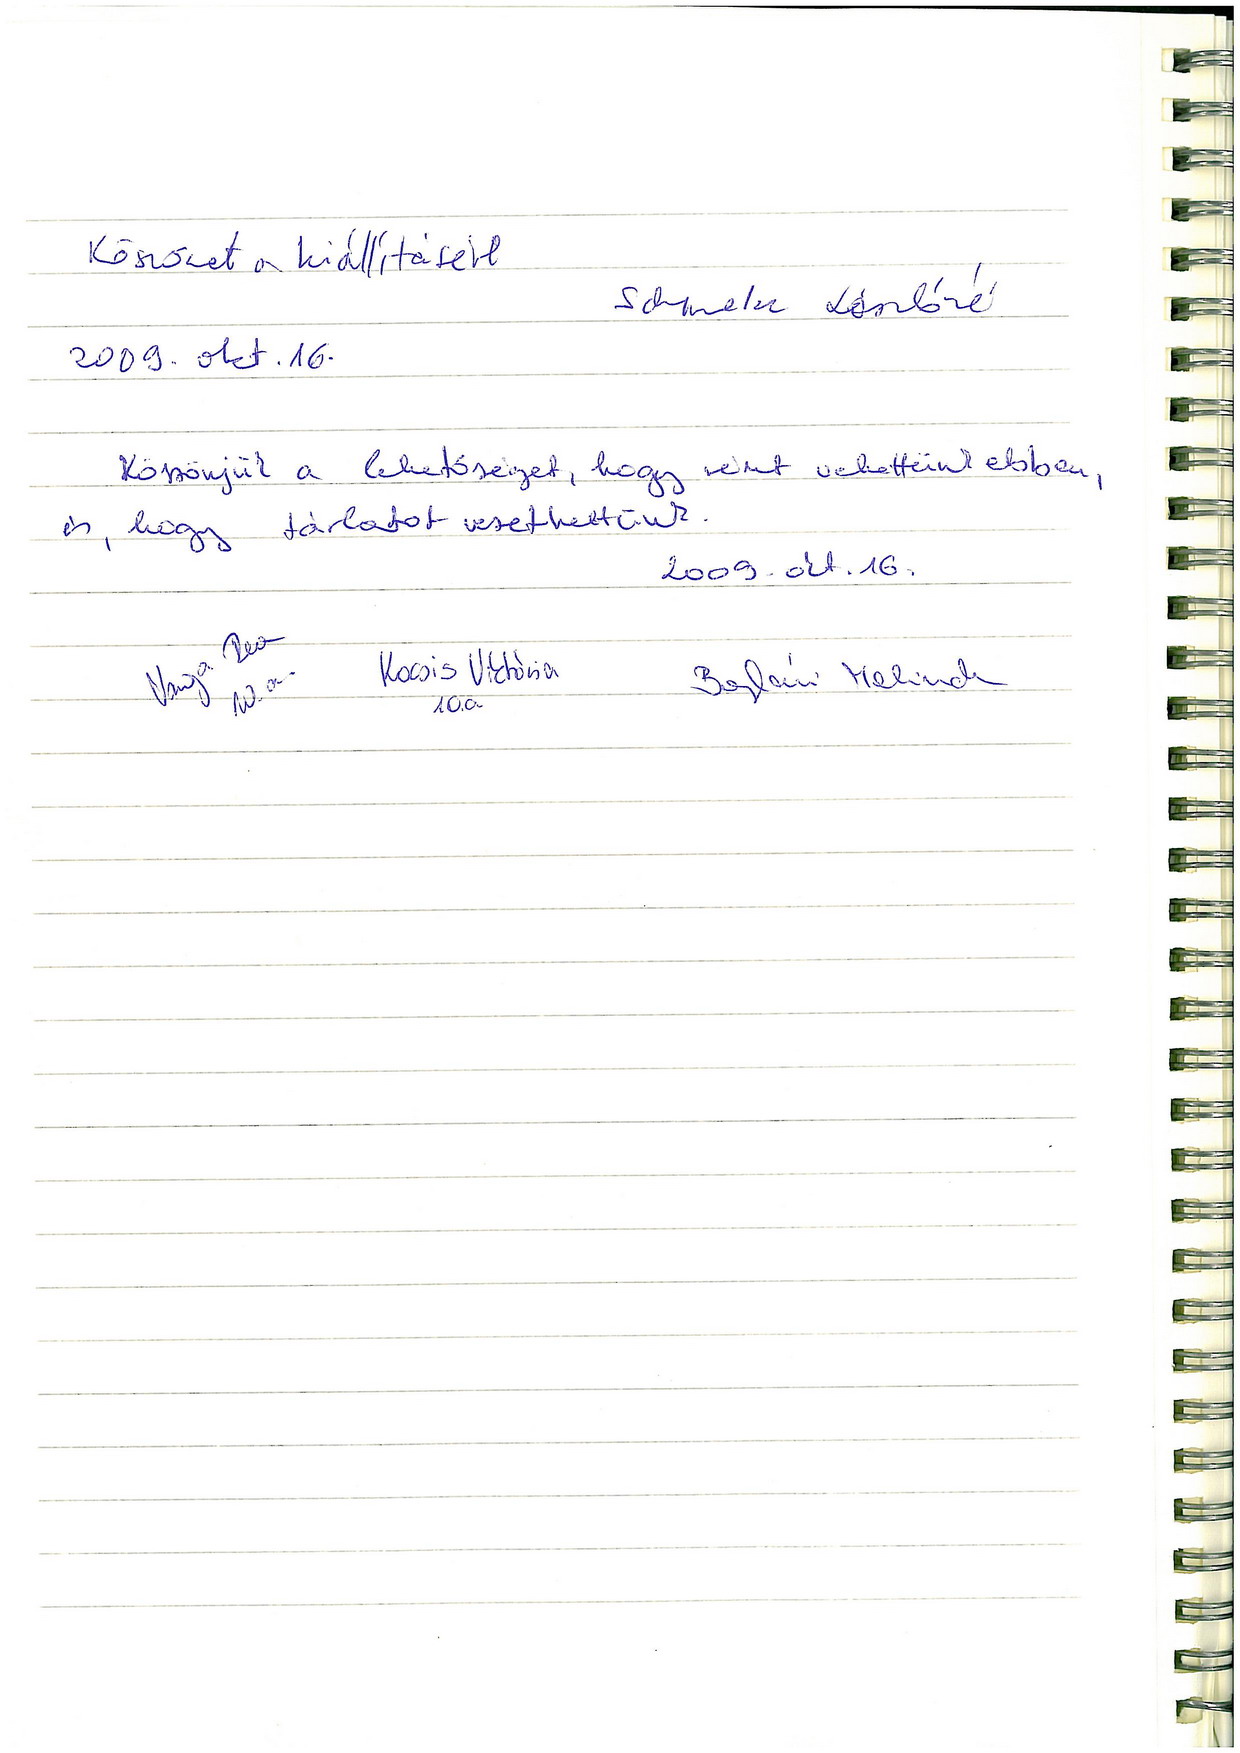 Köszönet a kiállításért
László né
2009. okt. 16.
Köszönjük a lehetőséget, hogy részt vehettünk ebben,
és, hogy tárlatot vezethettünk.
2009. okt. 16.
Varga Rea Kocsis Viktória Melinda
10. a. 10.a